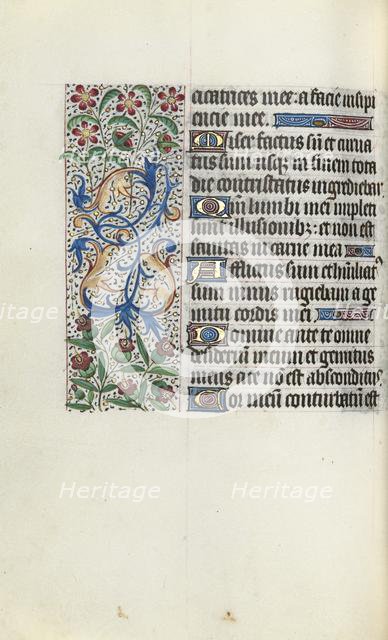 cicatrices mee: a facie insipi
encie mee.
Miser factus sū et curua
tus sum usqȝ in finem tota
die contristatus ingrediebar
Qm̄ lumbi mei impleti
sunt illusionibȝ: et non est
sanitas in carne mea
Afflictus sum et humiliatꝰ
sum nimis rugiebam a ge
mitu cordis mei
Domine ante te omne
desiderium meum et gemitus
meus a te nō est absconditus
Cor meū conturbatū est
Heritage Heritage
Heritage Heritage